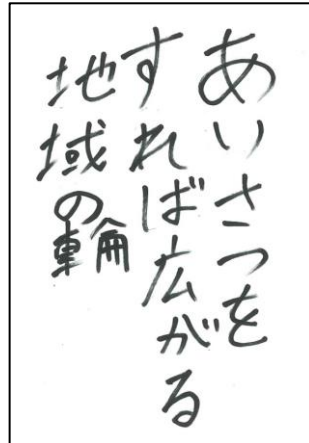 あいさつを
すれば広がる
地域の輪